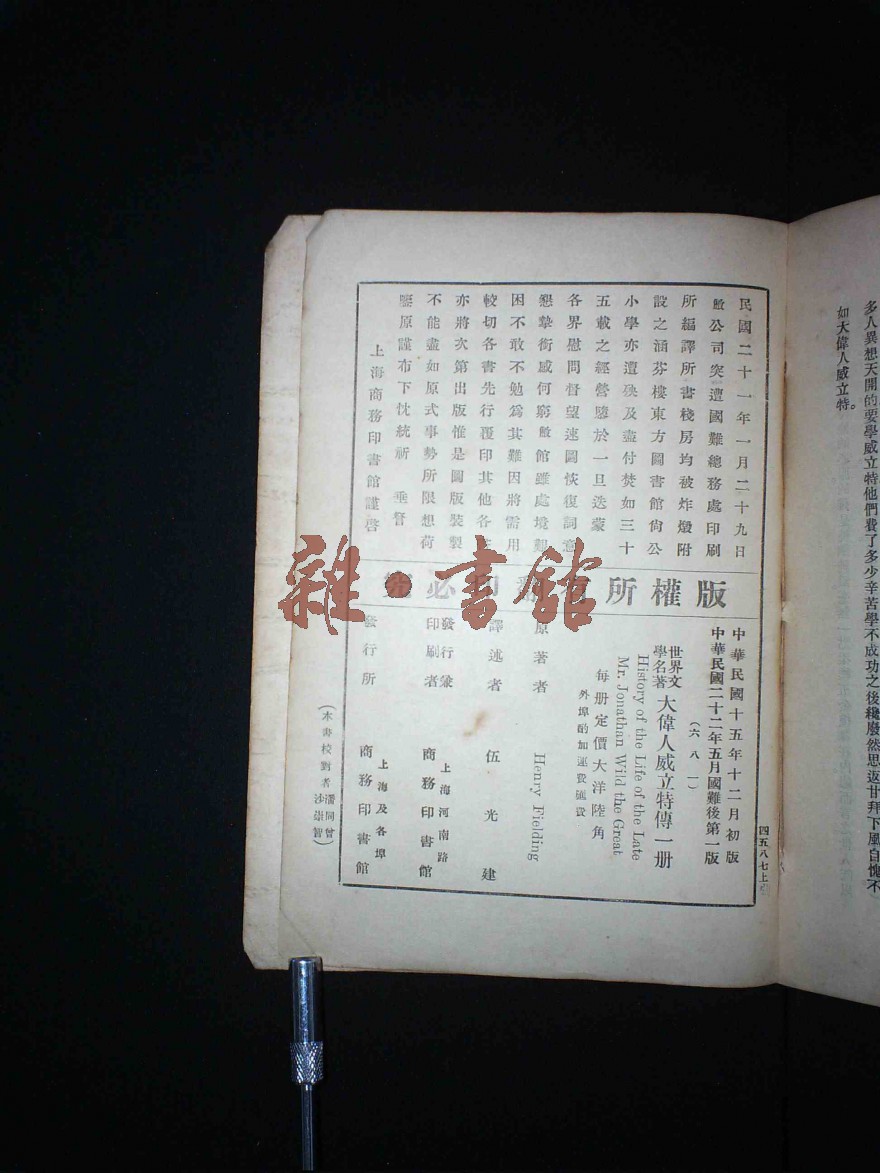 多人異想天開的要學威立特他們費了多少辛苦學不成功之後纔廢然思返甘拜下風自愧不
如大偉人威立特。
民國二十一年一月二十九日
敝公司突遭國難總務處印刷
所編譯所書棧房均被炸燬附
設之涵芬樓東方圖書館尙公
小學亦遭殃及盡付焚如三十
五載之經營隳於一旦迭蒙
各界慰問督望速圖恢復詞意
懇摯銜感何窮敝館雖處境艱
困不敢不勉爲其難因將需用
較切各書先行覆印其他各書
亦將次第出版惟是圖版裝製
不能盡如原式事勢所限想荷
鑒原謹布下忱統祈 垂詧
上海商務印書館謹啓
版權所有翻印必究
中華民國十五年十二月初版
中華民國二十二年五月國難後第一版
(六八一)
世界文學名著 大偉人威立特傳一册
History of the Life of the Late
Mr. Jonathan Wild the Great
每册定價大洋陸角
外埠酌加運費匯費
原著者 Henry Fielding
譯述者 伍光建
發行兼印刷者 上海河南路 商務印書館
發行所 上海及各埠 商務印書館
(本書校對者 潘同曾 沙崇智)
四五八七上
雜·書館